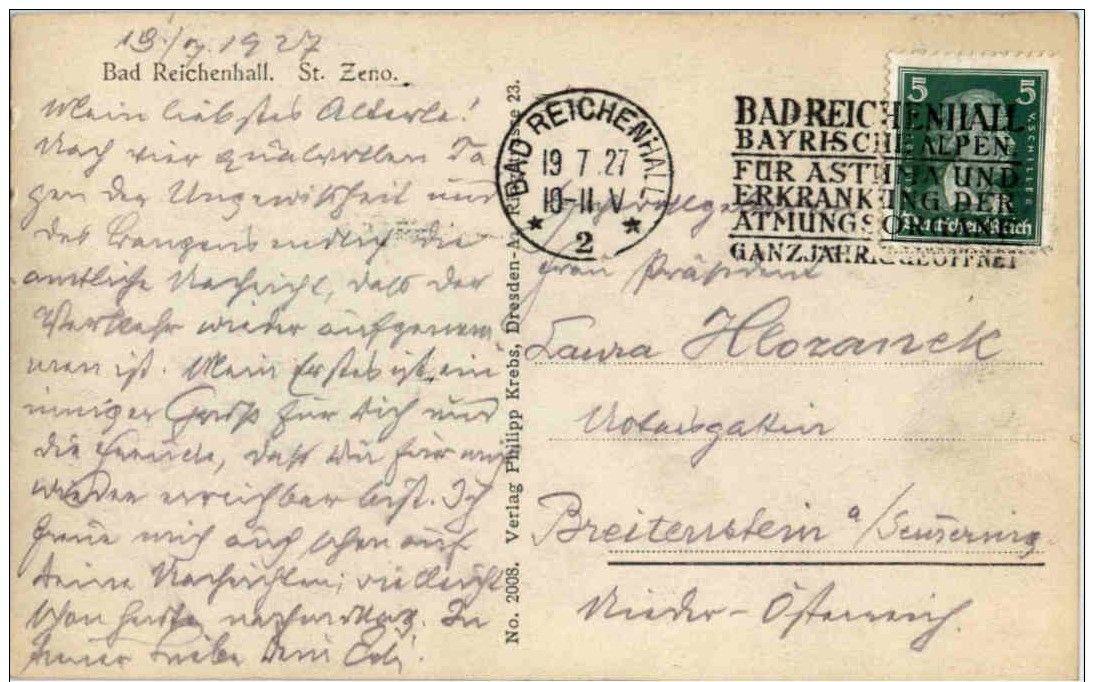 19./7. 1927
Bad Reichenhall. St. Zeno.
Mein liebstes Alterle!
Nach vier qualvollen Ta
gen der Ungewißheit und
des Bangens endlich die
amtliche Nachricht, daß der
Verkehr wieder aufgenom
men ist. Mein Erstes ist ein
inniger Gruß für Dich und
die Freude, daß Du für mich
wieder erreichbar bist. Ich
freue mich auch schon auf
Deine Nachrichten; vielleicht
schon heute nachmittag. In
Dein
No. 2008. Verlag Philipp Krebs, Dresden-A. 23.
BAD REICHENHALL
19 7.27
10-11 V
* 2 *
BAD REICHENHALL
BAYRISCHE ALPEN
FÜR ASTHMA UND
ERKRANKUNG DER
ATMUNGSORGANE
GANZJÄHRIG GEÖFFNET
5 5
V. SCHILLER
Deutsches Reich
Frau Präsident
Laura Hlozanek
Notarsgattin
Breitenstein a/Semmering
Nieder-Österreich.